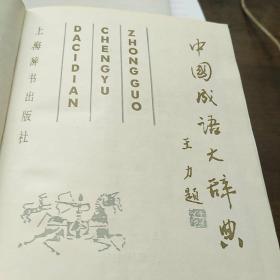 中國成语大辞典
王力题
ZHONGGUO
CHENGYU
DACIDIAN
上海辞书出版社